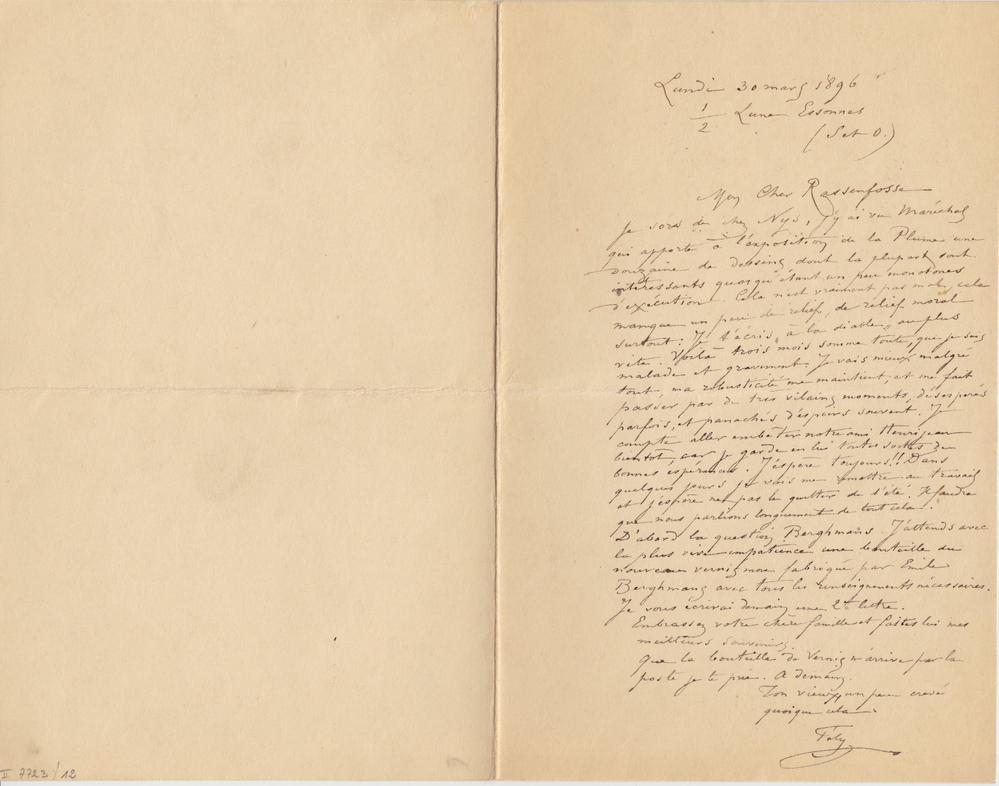 Lundi 30 mars 1896
1/2 Lune Essonnes
(S et O.)
Mon Cher Rassenfosse
Je sors de chez Nys, j'y ai vu Maréchal
qui apporte à l'exposition de la Plume une
douzaine de dessins dont la plupart sont
intéressants quoiqu'étant un peu monotones
d'exécution. Cela n'est vraiment pas mal, cela
manque un peu de relief, de relief moral
surtout : Je t'écris, "à la diable", au plus
vite. Voilà trois mois somme toute, que je suis
malade et gravement. Je vais mieux malgré
tout, ma robusticité me maintient, et me fait
passer par de très vilains moments, désespérés
parfois, et panachés d'espoirs souvent. Je
compte aller embêter notre ami Henrijean
bientôt, car je garde en lui toutes sortes de
bonnes espérances. J'espère toujours!! Dans
quelques jours je vais me remettre au travail
et j'espère ne pas le quitter de l'été. Il faudra
que nous parlions longuement de tout cela.
D'abord la question Berghmans. J'attends avec
la plus vive impatience une bouteille du
nouveau vernis mou fabriqué par Emile
Berghmans avec tous les renseignements nécessaires.
Je vous écrirai demain une 2e lettre.
Embrassez votre chère famille et faites lui mes
meilleurs souvenirs.
Que la bouteille de Vernis m'arrive par la
poste je te prie. A demain.
Ton vieux, un peu crevé
quoique cela
Fély
II 7723/12